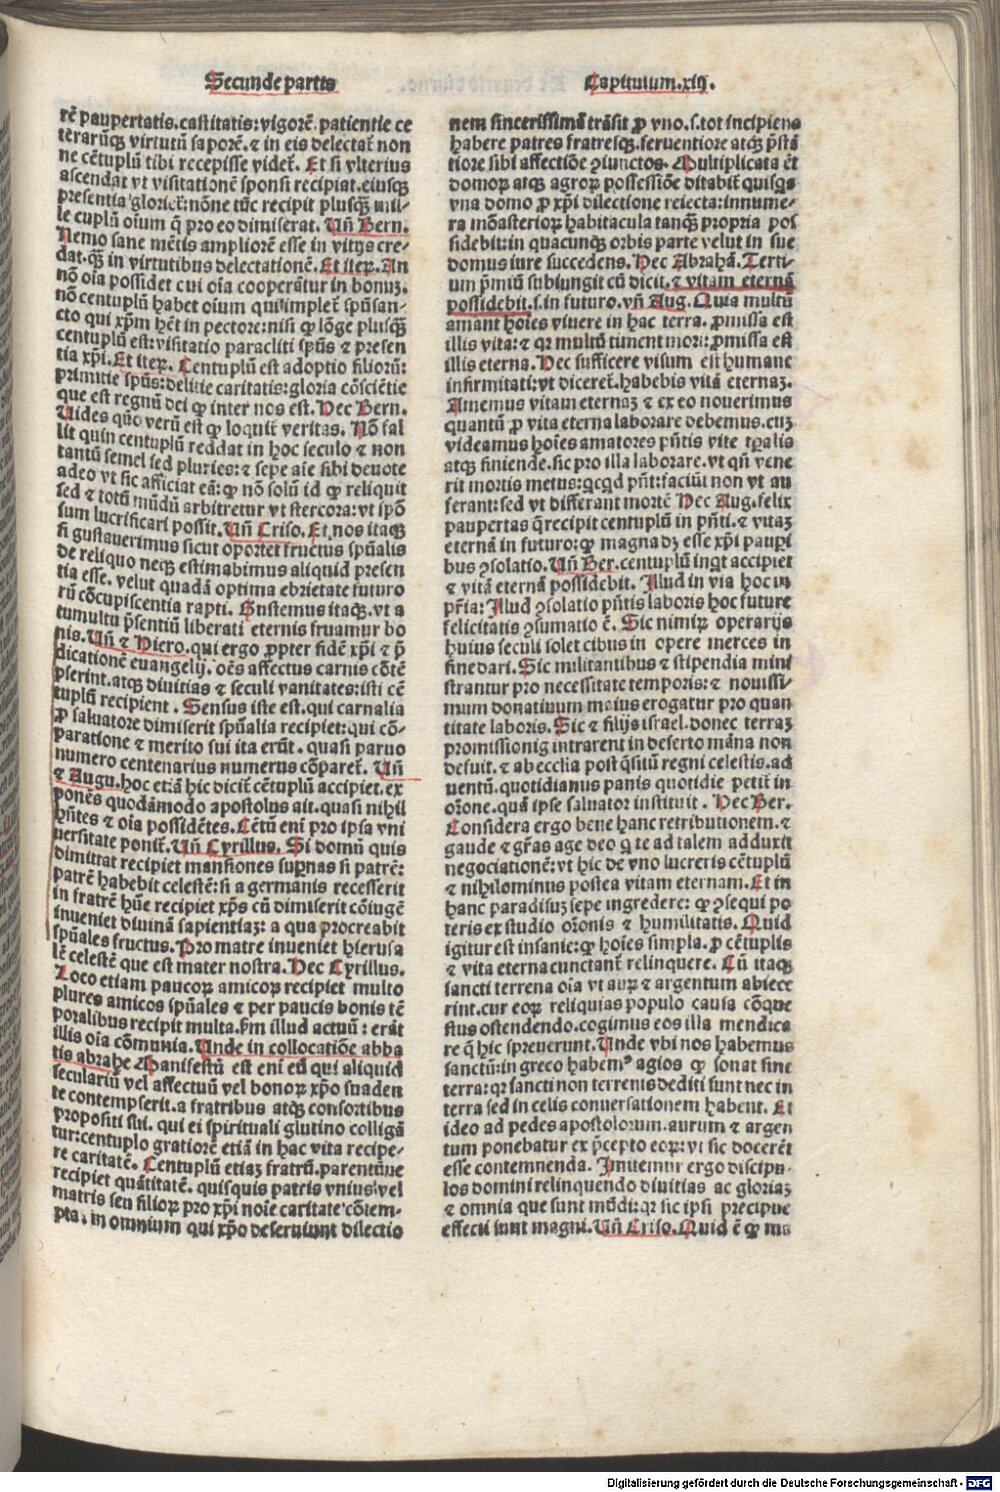 Secunde partis
Capitulum.xiij.
rē paupertatis.castitatis:vigorē.patientie ce
terarūqȝ virtutū saporē.⁊ in eis delectat̄ non
ne cētuplū tibi recepisse videt̄. Et si vlterius
ascendat vt visitationē sponsi recipiat.eiusqȝ
presentia gloriet̄:nōne tūc recipit plusqȝ mil-
le cuplū oīum q̄ pro eo dimiserat. Uñ Bern.
Nemo sane mētis ampliorē esse in vitijs cre-
dat.qȝ in virtutibus delectationē. Et iteꝝ. An
nō oīa possidet cui oīa cooperātur in bonuȝ.
nō centuplū habet oīum qui implet̄ spūsan-
cto qui xp̄m hēt in pectore:nisi ꝙ lōge plusqȝ
centuplū est:visitatio paracliti spūs ⁊ presen
tia xp̄i. Et iteꝝ. Centuplū est adoptio filiorū:
primitie spūs:delitie caritatis:gloria cōsciētie
que est regnū dei ꝙ inter nos est. Hec Bern.
Uides quō verū est ꝙ loquit̄ veritas. Nō fal
lit quin centuplū reddat in hoc seculo ⁊ non
tantū semel sed pluries:⁊ sepe aīe sibi deuote
adeo vt sic afficiat eā:ꝙ nō solū id ꝙ reliquit
sed ⁊ totū mūdū arbitretur vt stercora:vt ip̄ō
sum lucrificari possit. Uñ Criso. Et nos itaqȝ
si gustauerimus sicut oportet fructus spūalis
de reliquo neqȝ estimabimus aliquid presen
tia esse. velut quadā optima ebrietate futuro
rū cōcupiscentia rapti. Gustemus itaqȝ.vt a
tumultu p̄sentiū liberati eternis fruamur bo
nis. Uñ ⁊ Hiero.qui ergo ꝓpter fidē xp̄i ⁊ p̄
dicationē euangelij. oēs affectus carnis cōtē
pserint.atqȝ diuitias ⁊ seculi vanitates:isti cē
tuplū recipient. Sensus iste est.qui carnalia
ꝓ saluatore dimiserit spūalia recipiet:qui cō-
paratione ⁊ merito sui ita erūt. quasi paruo
numero centenarius numerus cōparet̄. Uñ
⁊ Augu.hoc etiā hic dicit̄ cētuplū accipiet.ex
ponēs quodāmodo apostolus ait.quasi nihil
hn̄tes ⁊ oīa possidētes. Cētū eni pro ipsa vni
uersitate ponit̄. Uñ Cyrillus. Si domū quis
dimittat recipiet mansiones suꝑnas si patrē:
patrē habebit celestē:si a germanis recesserit
in fratrē hūc recipiet xp̄s cū dimiserit cōiugē
inueniet diuinā sapientiaȝ: a qua procreabit
spūales fructus. Pro matre inueniet hierusa
lē celestē que est mater nostra. Hec Cyrillus.
Loco etiam paucoꝝ amicoꝝ recipiet multo
plures amicos spūales ⁊ per paucis bonis tē
poralibus recipit multa.ẜm illud actuū: erāt
illis oīa cōmunia. Unde in collocatiōe abba
tis abrahe Manifestū est eni eū qui aliquid
seculariū vel affectuū vel bonoꝝ xp̄o suaden
te contempserit.a fratribus atqȝ consortibus
propositi sui. qui ei spirituali glutino colligā
tur:centuplo gratiorē etiā in hac vita recipe-
re caritatē. Centuplū etiaȝ fratrū.parentūue
recipiet quātitatē. quisquis patris vnius:vel
matris seu filioꝝ pro xp̄i noīe caritate cōtem-
pta. in omnium qui xp̄o deseruiunt dilectio
nem sincerissimā trāsit ꝓ vno.s.tot incipiens
habere patres fratresqȝ.feruentiore atqȝ p̄stā
tiore sibi affectiōe ꝯiunctos. Multiplicata ēt
domoꝝ atqȝ agroꝝ possessiōe ditabit̄ quisqs
vna domo ꝓ xp̄i dilectione reiecta:innume-
ra mōasterioꝝ habitacula tanqȝ propria pos
sidebit:in quacunqȝ orbis parte velut in sue
domus iure succedens. Hec Abrahā. Terti-
um p̄miū subiungit cū dicit.⁊ vitam eternā
possidebit.s.in futuro.vñ Aug. Quia multū
amant hoīes viuere in hac terra. ꝓmissa est
illis vita:⁊ qr multū timent mori:ꝓmissa est
illis eterna. Hec sufficere visum est humane
infirmitati:vt diceret̄.habebis vitā eternaȝ.
Amemus vitam eternaȝ ⁊ ex eo nouerimus
quantū ꝓ vita eterna laborare debemus.cuȝ
videamus hoīes amatores p̄ntis vite tp̄alis
atqȝ finiende.sic pro illa laborare.vt qn̄ vene
rit mortis metus:qcqd pn̄t:faciūt non vt au
ferant:sed vt differant mortē Hec Aug.felix
paupertas q̄ recipit centuplū in pn̄ti.⁊ vitaȝ
eternā in futuro:ꝙ magna dȝ esse xp̄i pauꝑi
bus ꝯsolatio. Uñ Ber.centuplū inqt accipiet
⁊ vitā eternā possidebit. Illud in via hoc in
pr̄ia: Illud ꝯsolatio pn̄tis laboris hoc future
felicitatis ꝯsumatio ē. Sic nimiꝝ operarijs
huius seculi solet cibus in opere merces in
fine dari. Sic militantibus ⁊ stipendia mini
strantur pro necessitate temporis:⁊ nouissi-
mum donatiuum maius erogatur pro quan
titate laboris. Sic ⁊ filijs israel.donec terraȝ
promissionis intrarent in deserto māna non
defuit.⁊ ab ecclia post q̄sitū regni celestis.ad
uentū.quotidianus panis quotidie petit̄ in
orōne.quā ipse saluator instituit. Hec Ber.
Considera ergo bene hanc retributionem.⁊
gaude ⁊ gr̄as age deo q te ad talem adduxit
negociationē:vt hic de vno lucreris cētuplū
⁊ nihilominus postea vitam eternam. Et in
hanc paradisuȝ sepe ingredere: ꝙ ꝯsequi po
teris ex studio orōnis ⁊ humilitatis. Quid
igitur est insanie:ꝙ hoīes simpla.ꝓ cētuplis
⁊ vita eterna cunctant̄ relinquere. Cū itaqȝ
sancti terrena oīa vt auꝝ ⁊ argentum abiece
rint.cur eoꝝ reliquias populo causa cōque
stus ostendendo.cogimus eos illa mendica
re q̄ hic spreuerunt. Unde vbi nos habemus
sanctū:in greco habemꝰ agios ꝙ sonat sine
terra:qr sancti non terrenis dediti sunt nec in
terra sed in celis conuersationem habent. Et
ideo ad pedes apostolorum.aurum ⁊ argen
tum ponebatur ex p̄cepto eoꝝ:vt sic docerēt
esse contemnenda. Imitemur ergo discipu-
los domini relinquendo diuitias ac gloriaȝ
⁊ omnia que sunt mūdi:qr sic ipsi precipue
effecti sunt magni. Uñ Criso. Quid ē ꝙ ma
Digitalisierung gefördert durch die Deutsche Forschungsgemeinschaft - DFG